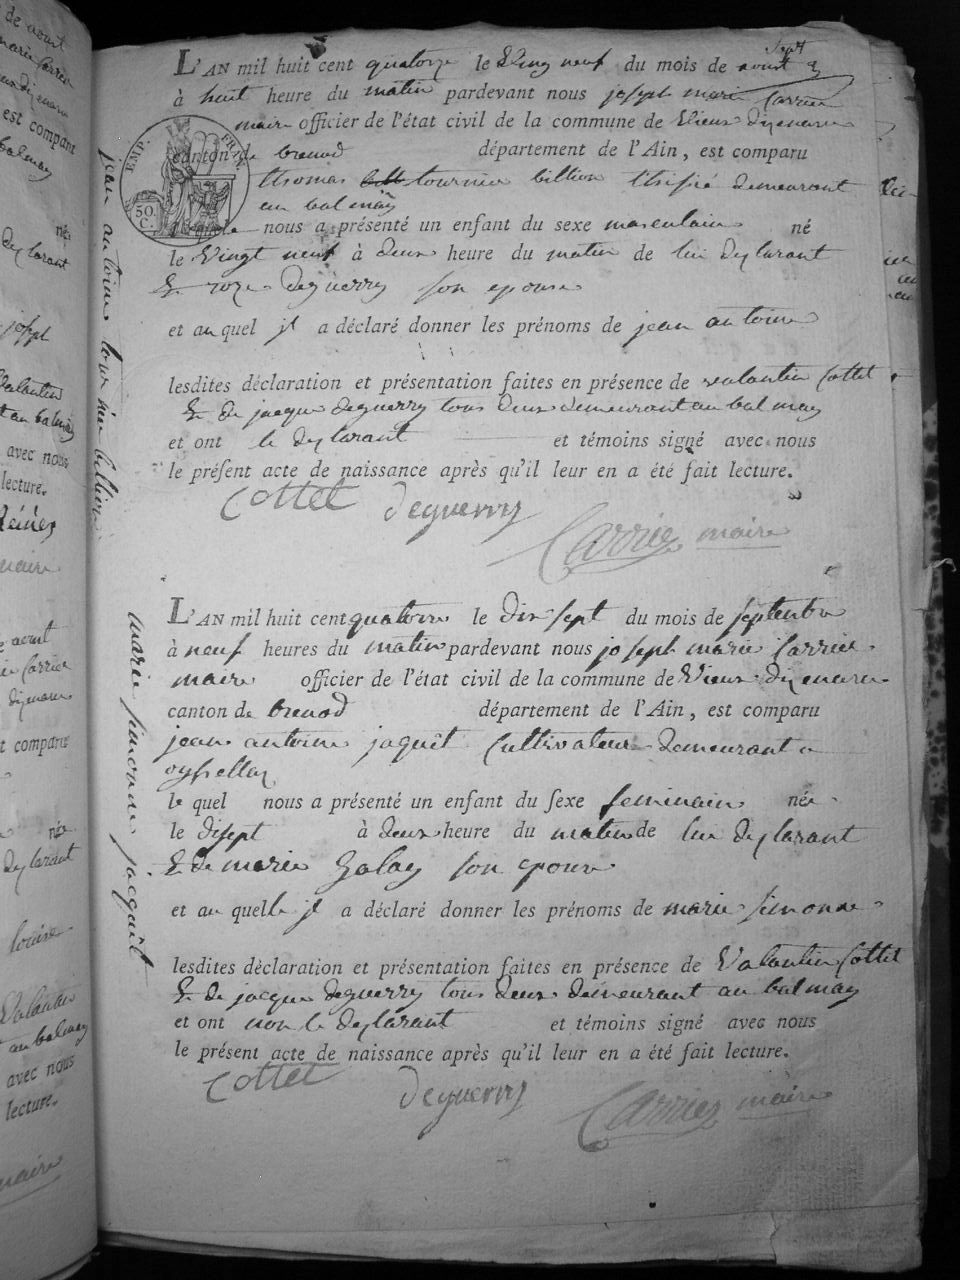 sept
L'AN mil huit cent quatorze le Vingt neuf du mois de aoust
à huit heure du matin pardevant nous joseph marie Carrier
maire officier de l'état civil de la commune de Vieux dizenave
canton de brenod département de l'Ain, est comparu
thomas tournier billion demeurant
au balmay
nous a présenté un enfant du sexe masculain né
le Vingt neuf à deux heure du matin de lui deylarant
Et roze deguerry son epouse
et au quel jl a déclaré donner les prénoms de jean antoine
lesdites déclaration et présentation faites en présence de valantin Cottet
Et de jacque deguerry tous deux demeurant au balmay
et ont le deylarant et témoins signé avec nous
le présent acte de naissance après qu'il leur en a été fait lecture.
Cottet deguerry
Carrier maire
jean antoine tournier billion
EMP. FRANÇ.
50. C.
L'AN mil huit cent quatorze le dix sept du mois de septembre
à neuf heures du matin pardevant nous joseph marie Carrier
maire officier de l'état civil de la commune de Vieux dizenave
canton de brenod département de l'Ain, est comparu
jean antoine jaquit Cultivateur demeurant a
oysellaz
le quel nous a présenté un enfant du sexe feminain née
le disept à deux heure du matin de lui deylarant
Et de marie Galay son epouse
et au quelle jl a déclaré donner les prénoms de marie simonne
lesdites déclaration et présentation faites en présence de Valantin Cottet
Et de jacque deguerry tous deux demeurant au balmay
et ont non le deylarant et témoins signé avec nous
le présent acte de naissance après qu'il leur en a été fait lecture.
Cottet deguerry
Carrier maire
marie simonne jacquit